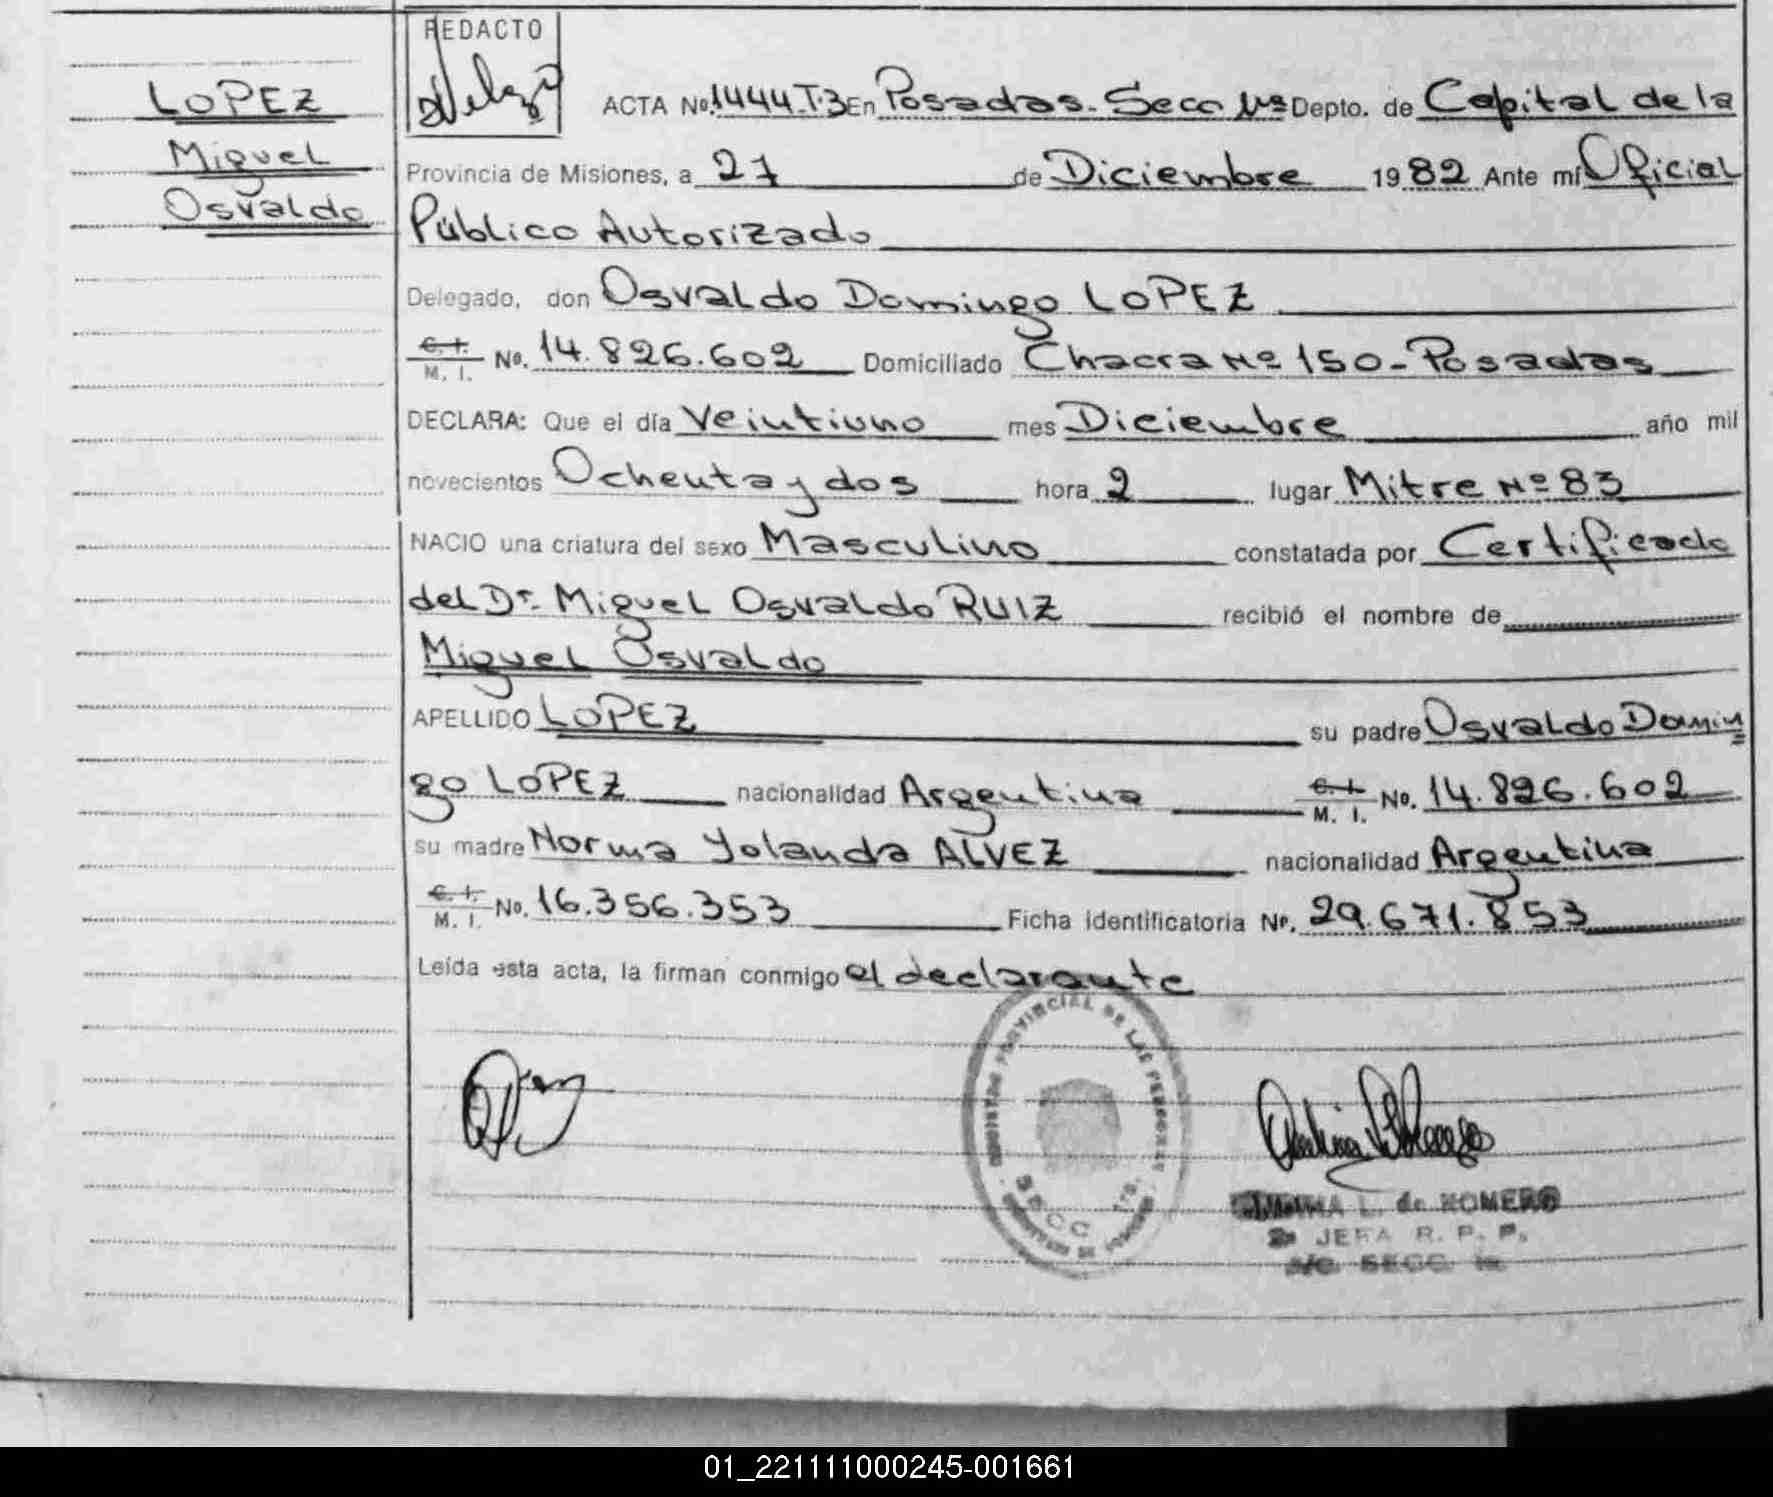 REDACTO
LOPEZ
Miguel
Osvaldo
ACTA No. 1444-T.3 En Posadas. Secc 1ra Depto. de Capital de la
Provincia de Misiones, a 27 de Diciembre 1982 Ante mí Oficial
Público Autorizado
Delegado, don Osvaldo Domingo LOPEZ
C. I. M. I. No. 14.826.602 Domiciliado Chacra Nº 150-Posadas
DECLARA: Que el día Veintiuno mes Diciembre año mil
novecientos Ochenta y dos hora 2 lugar Mitre Nº 83
NACIO una criatura del sexo Masculino constatada por Certificado
del Dr. Miguel Osvaldo RUIZ recibió el nombre de
Miguel Osvaldo
APELLIDO LOPEZ su padre Osvaldo Domin
go LOPEZ nacionalidad Argentina C. I. M. I. No. 14.826.602
su madre Norma Yolanda ALVEZ nacionalidad Argentina
C. I. M. I. No. 16.356.353 Ficha identificatoria Nº. 29.671.853
Leída esta acta, la firman conmigo el declarante
PROVINCIAL DE LAS PERSONAS
SECC. 1ra.
L. de ROMERO
JEFA R. P. P.
SECC. 1a.
01_221111000245-001661